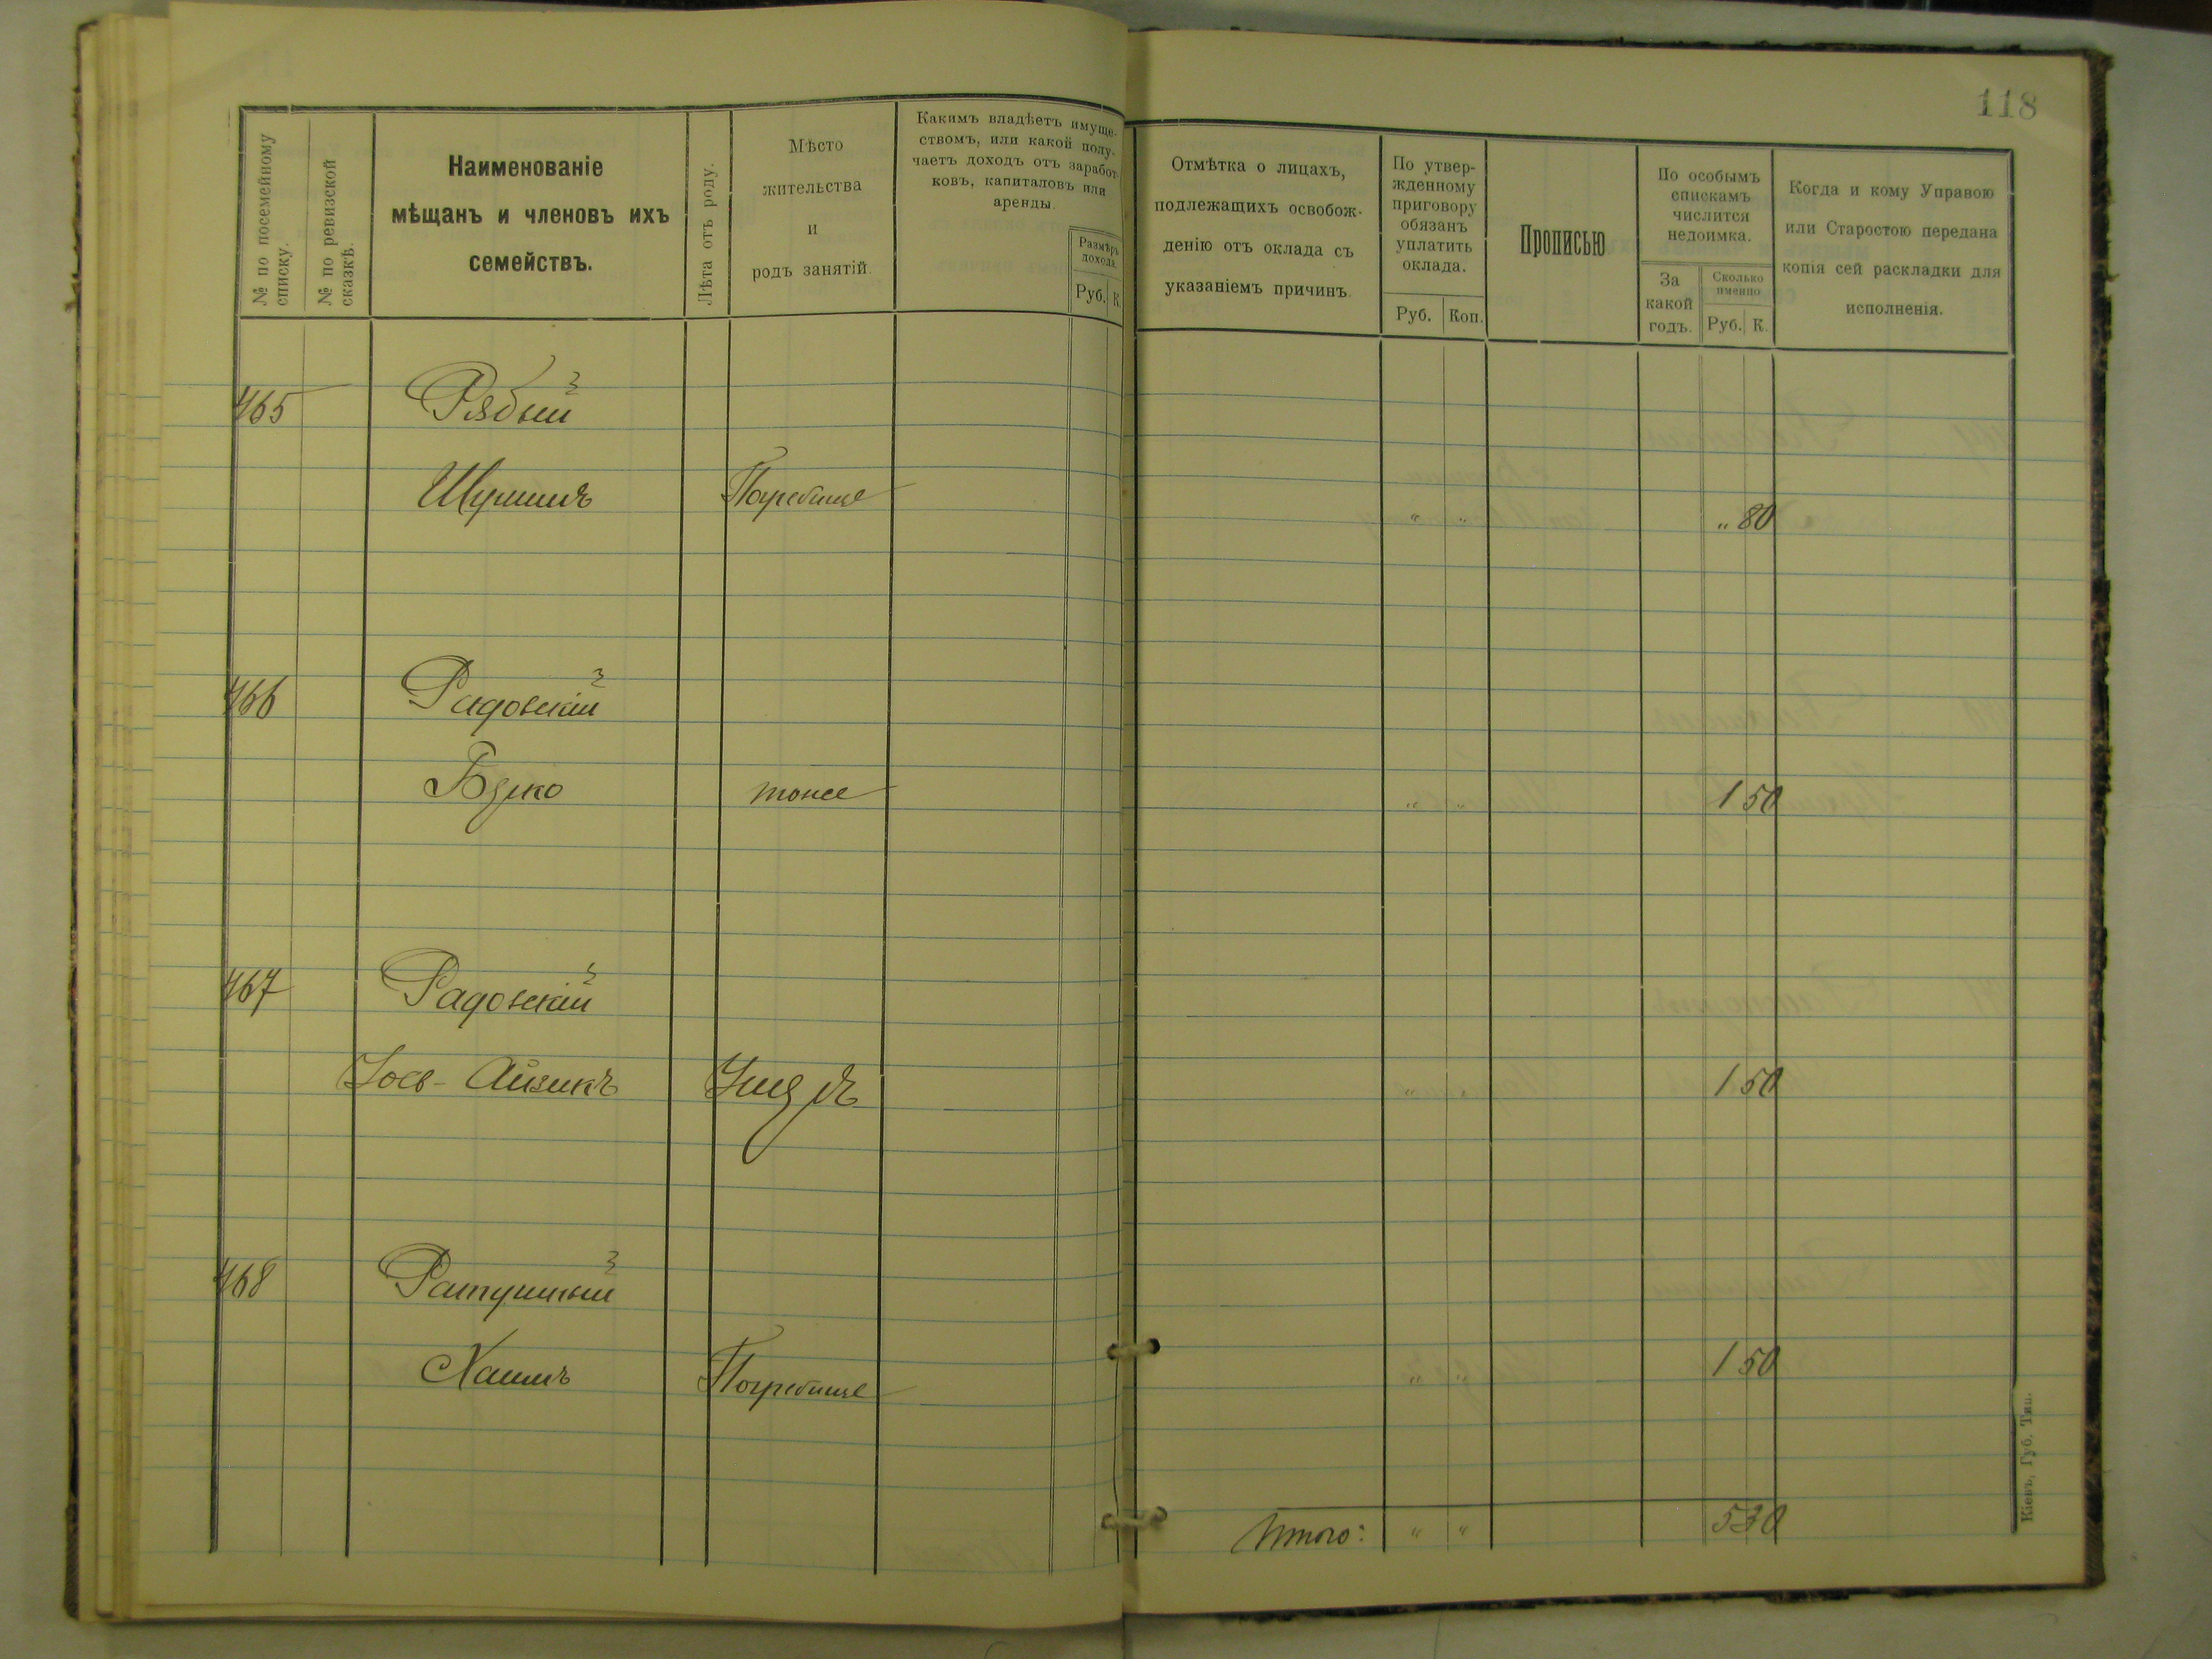 118
№ по посемейному списку.
№ по ревизской сказкѣ.
Наименованіе
мѣщанъ и членовъ ихъ
семействъ.
Лѣта отъ роду.
Мѣсто
жительства
и
родъ занятій.
Какимъ владѣетъ имуще-
ствомъ, или какой полу-
чаетъ доходъ отъ заработ-
ковъ, капиталовъ или
аренды.
Размѣръ
дохода.
Руб. К.
Отмѣтка о лицахъ,
подлежащихъ освобож-
денію отъ оклада съ
указаніемъ причинъ.
По утвер-
жденному
приговору
обязанъ
уплатить
оклада.
Руб. Коп.
Прописью
По особымъ
спискамъ
числится
недоимка.
За
какой
годъ.
Сколько
именно
Руб. К.
Когда и кому Управою
или Старостою передана
копія сей раскладки для
исполненія.
465 Рябый
Погребище " " " 80
466 Радовскій
Берко тоже " " 1 50
467 Радовскій
Іось-Айзикъ " 1 50
468 Ратушный
Хаимъ Погребище " " 1 50
Итого: " " 5 30
Кіевъ, Губ. Тип.